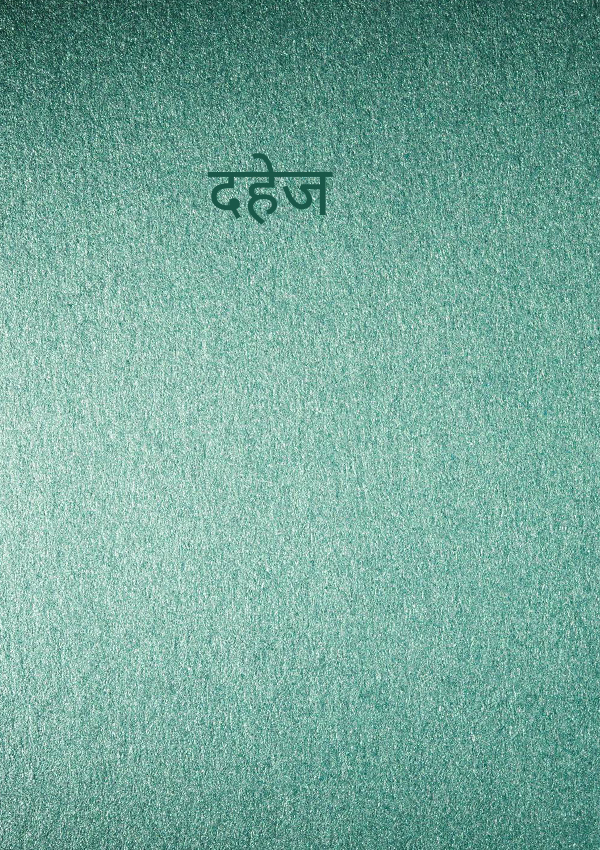 दहेज